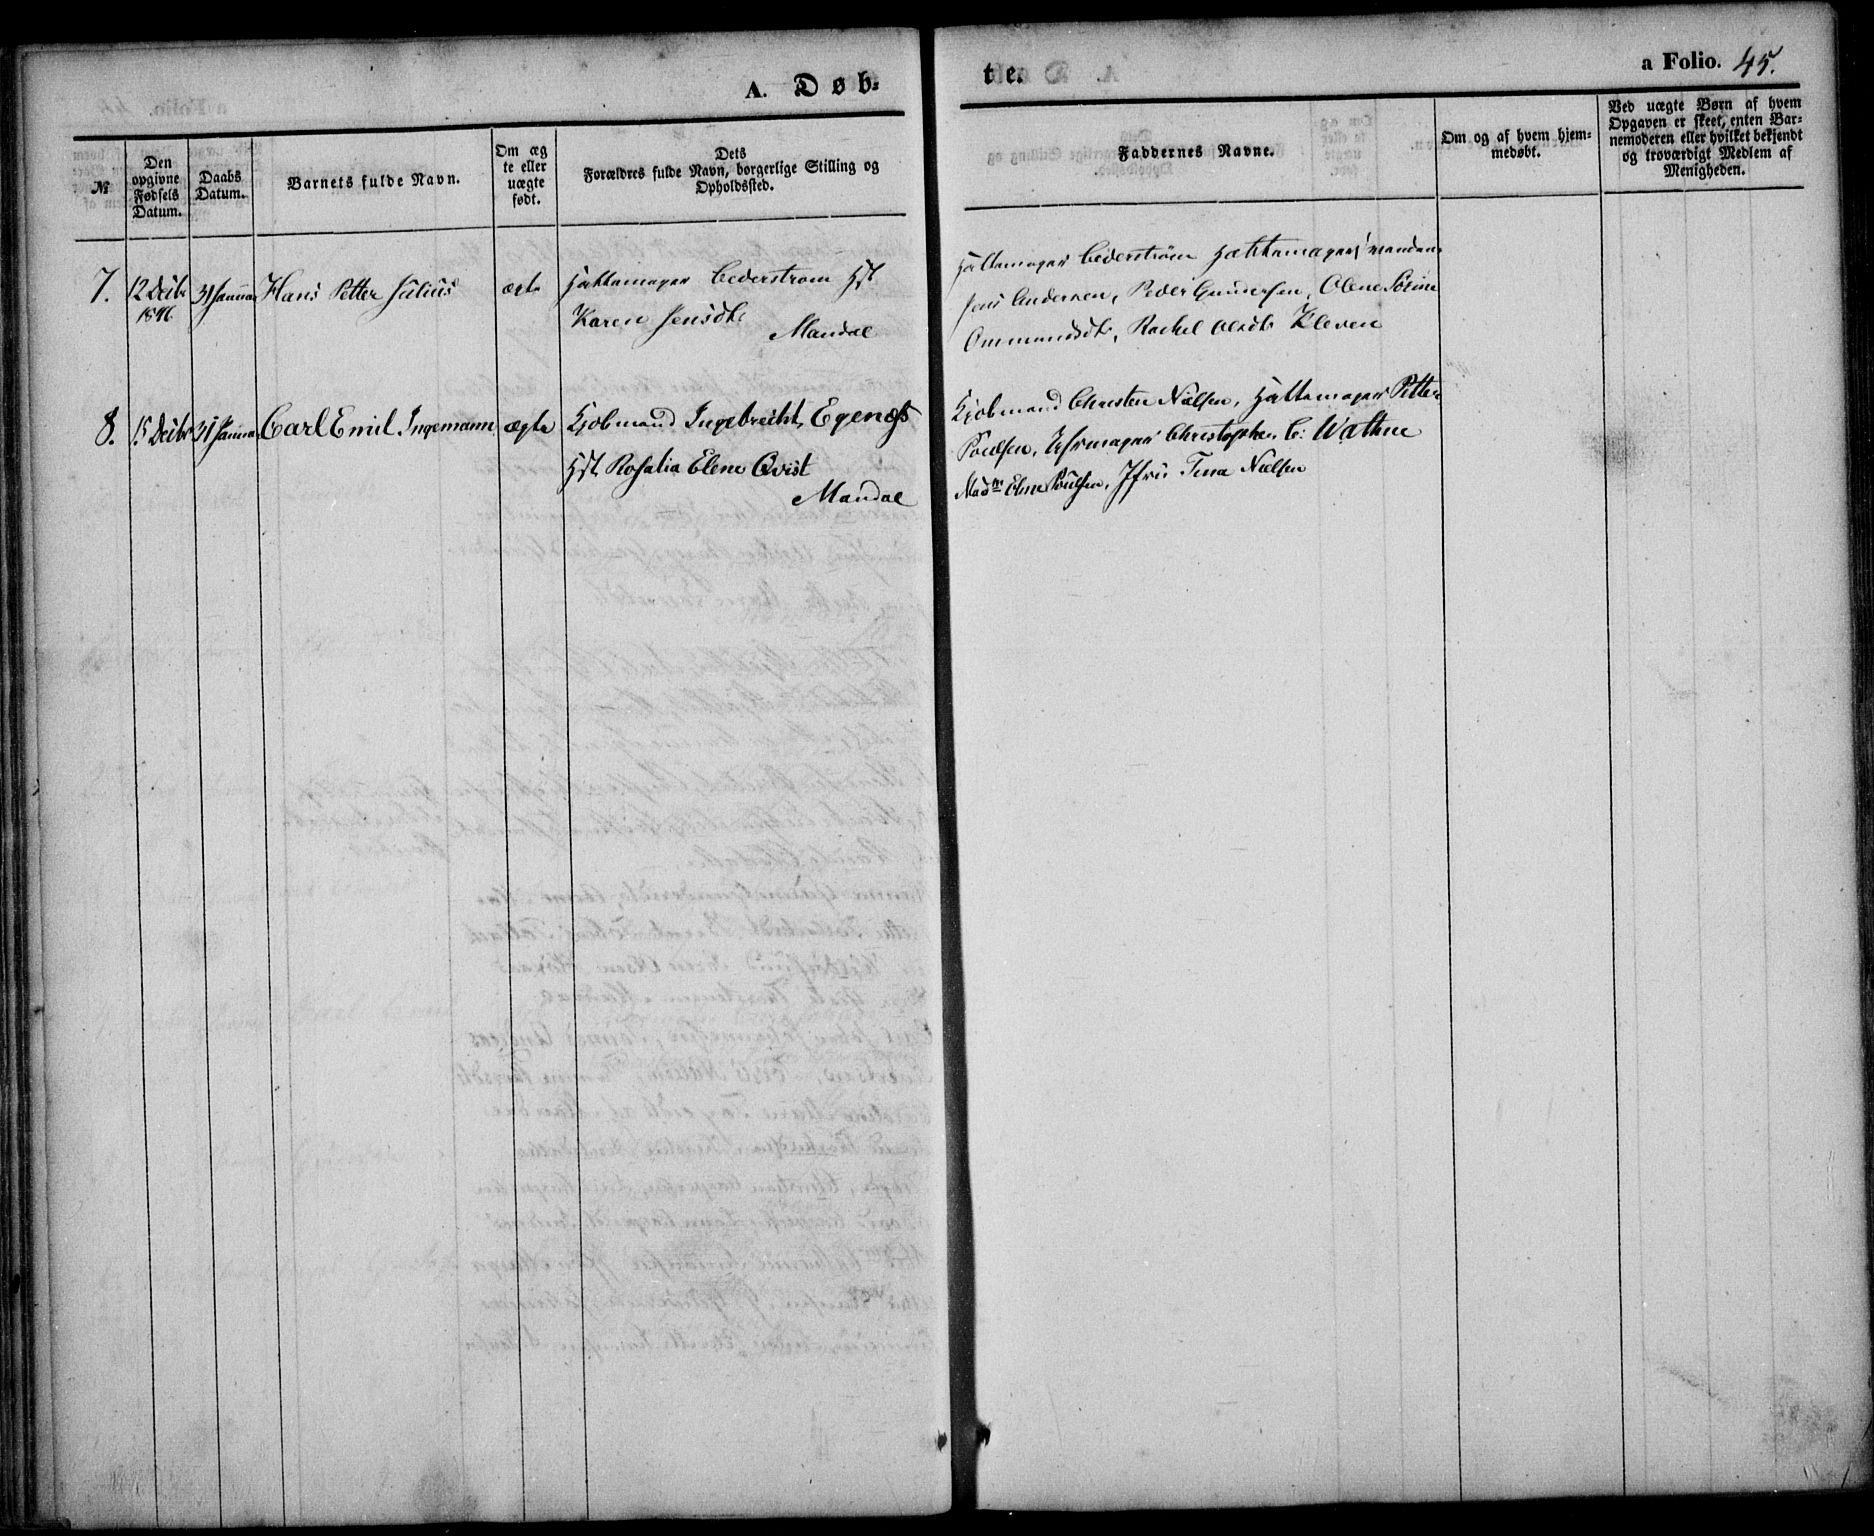 A. Døb=
te.
a Folio. 45.
№
Den opgivne Fødsels Datum.
Daabs Datum.
Barnets fulde Navn.
Om æg
te eller
uægte
født.
Dets
Forældres fulde Navn, borgerlige Stilling og
Opholdssted.
Faddernes Navne.
Om og af hvem hjem=
medøbt.
Ved uægte Børn af hvem
Opgaven er skeet, enten Bar=
nemoderen eller hvilket bekjendt
og troværdigt Medlem af
Menigheden.
7. 12 Decbr 31 Januar Hans Petter Julius ægte Hattemager Cederstrøm Hst
1846
Karen Jensdt.
Mandal
Hattemager Cederstrøm
Jens Andersen, Peder Gundersen, Olene Sørine
Ommundsdt, Rachel Olsdt Kleven
8. 15 Decbr 31 Januar Carl Emil Ingemann ægte Kjøbmand Ingebrecht Egenæss
Hst Rosalia Elene Qvist
Mandal
Kjøbmand Christen Nielsen, Hattemager Petter
Poulsen, Uhrmager Christopher C: Wathne
Madm Elene Poulsen, Jfru Tina Nielsen